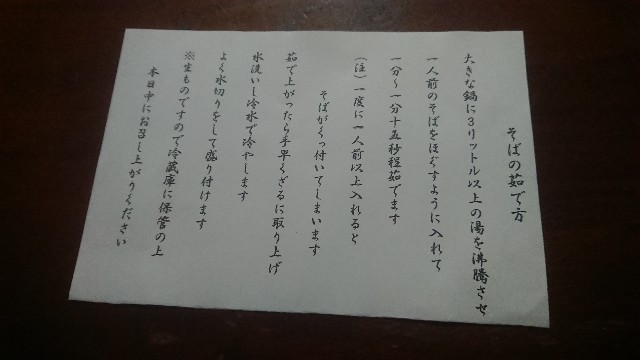 そばの茹で方
大きな鍋に３リットル以上の湯を沸騰させ
一人前のそばをほぐすように入れて
一分〜一分十五秒程茹でます
(注)一度に一人前以上入れると
そばがくっ付いてしまいます
茹で上がったら手早くざるに取り上げ
水洗いし冷水で冷やします
よく水切りをして盛り付けます
※生ものですので冷蔵庫に保管の上
本日中にお召し上がりください